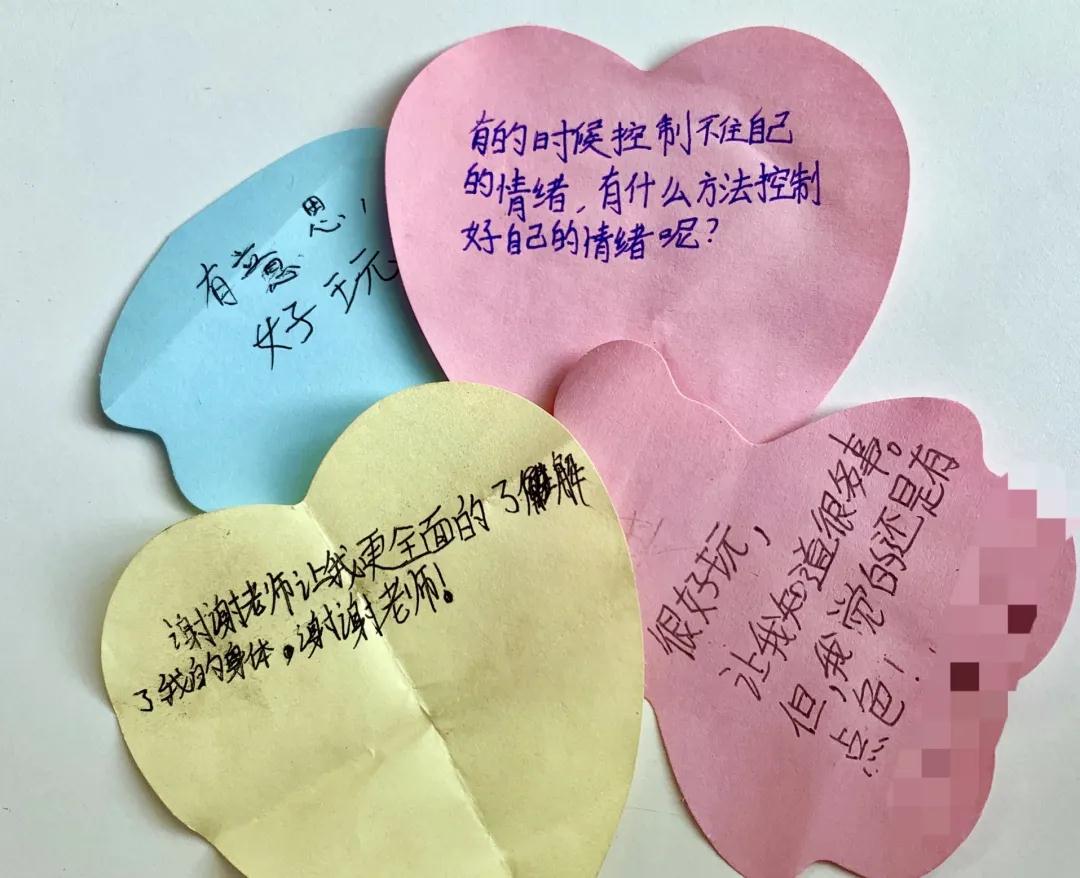 有意思！
好玩
有的时候控制不住自己
的情绪，有什么方法控制
好自己的情绪呢？
谢谢老师让我更全面的了解
了我的身体，谢谢老师！
很好玩，
让我知道很多事。
但，我觉的还是有
点色！